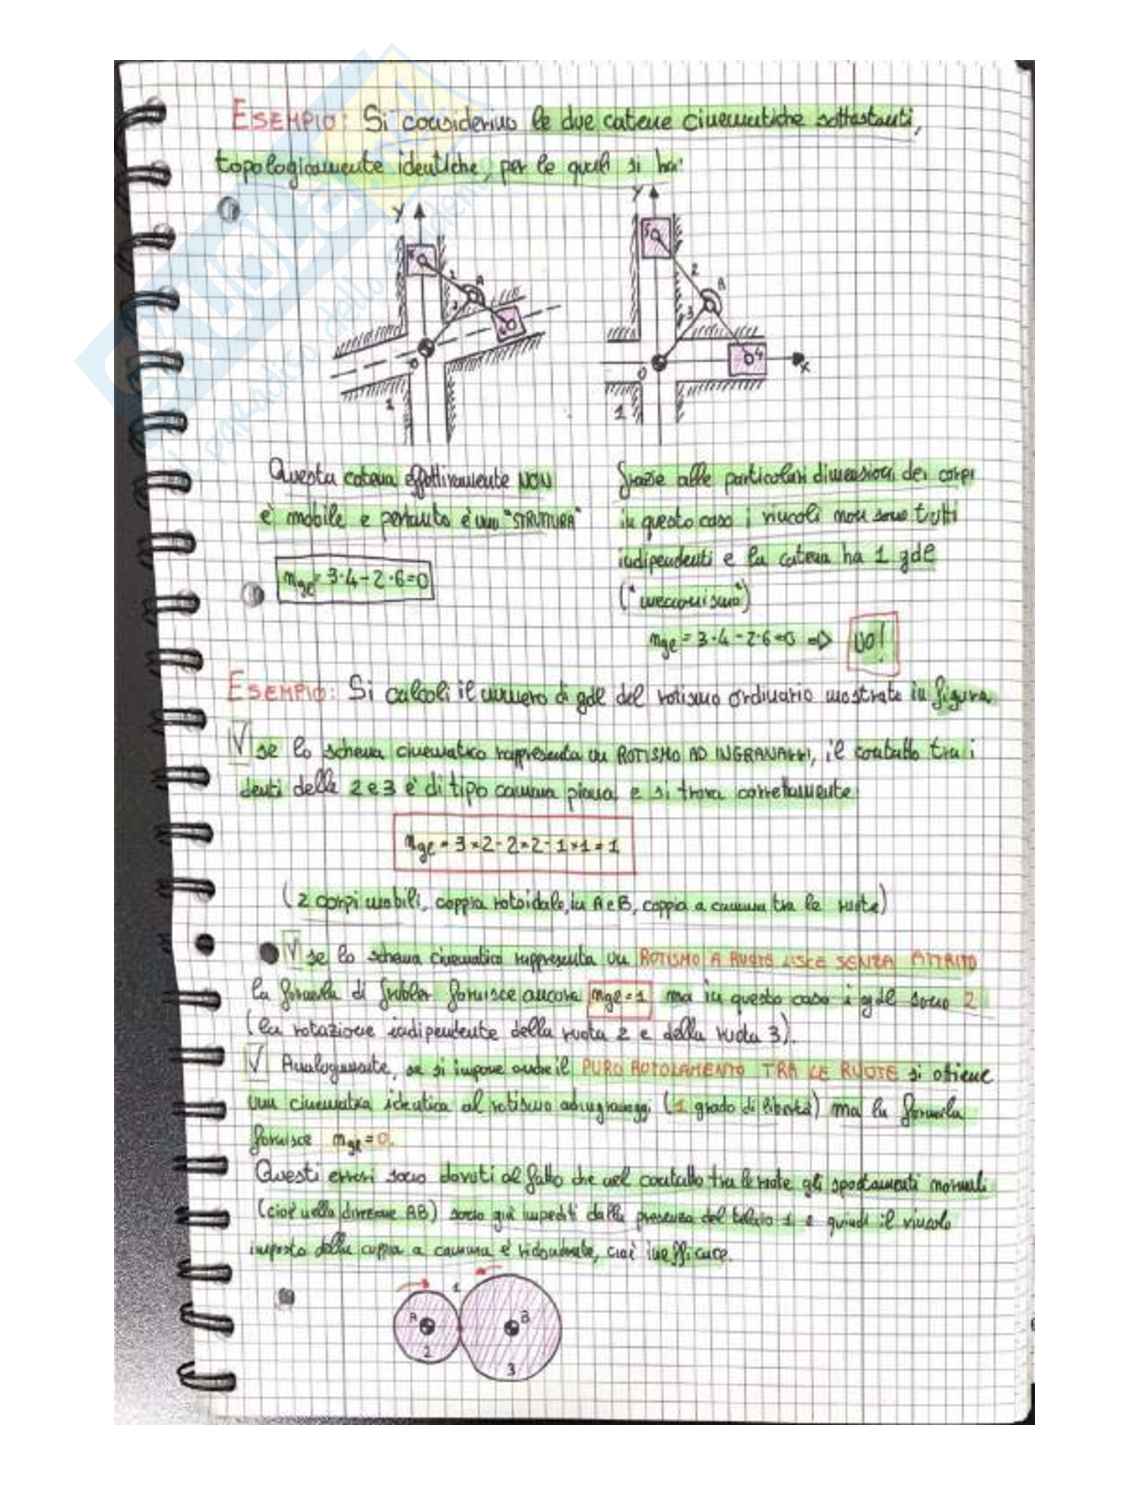 ESEMPIO: Si considerino le due catene cinematiche sottostanti,
topologicamente identiche, per le quali si ha:
Y
Y
5
2
A
3
4
O
1
5
2
A
3
4
O
X
1
Questa catena effettivamente NON
è mobile e pertanto è una "STRUTTURA"
mgl = 3·4-2·6=0
Grazie alle particolari dimensioni dei corpi
in questo caso i vincoli non sono tutti
indipendenti e la catena ha 1 gdl
("meccanismo")
mgl = 3·4-2·6=0 => NO!
ESEMPIO: Si calcoli il numero di gdl del rotismo ordinario mostrato in figura
V se lo schema cinematico rappresenta un ROTISMO AD INGRANAGGI, il contatto tra i
denti delle 2 e 3 è di tipo camma piana e si trova correttamente
mgl = 3×2-2×2-1×1=1
(2 corpi mobili, coppia rotoidale, in A e B, coppia a camma tra le ruote)
V se lo schema cinematico rappresenta un ROTISMO A RUOTE LISCE SENZA ATTRITO
la formula di Grubler fornisce ancora mgl=1 ma in questo caso i gdl sono 2
(la rotazione indipendente della ruota 2 e della ruota 3).
V Analogamente, se si impone anche il PURO ROTOLAMENTO TRA LE RUOTE si ottiene
una cinematica identica al rotismo ad ingranaggi (1 grado di libertà) ma la formula
fornisce mgl=0.
Questi errori sono dovuti al fatto che nel contatto tra le ruote gli spostamenti normali
(cioè nella direzione AB) sono già impediti dalla presenza del telaio 1 e quindi il vincolo
imposto dalla coppia a camma è ridondante, cioè inefficace.
1
A
B
2
3